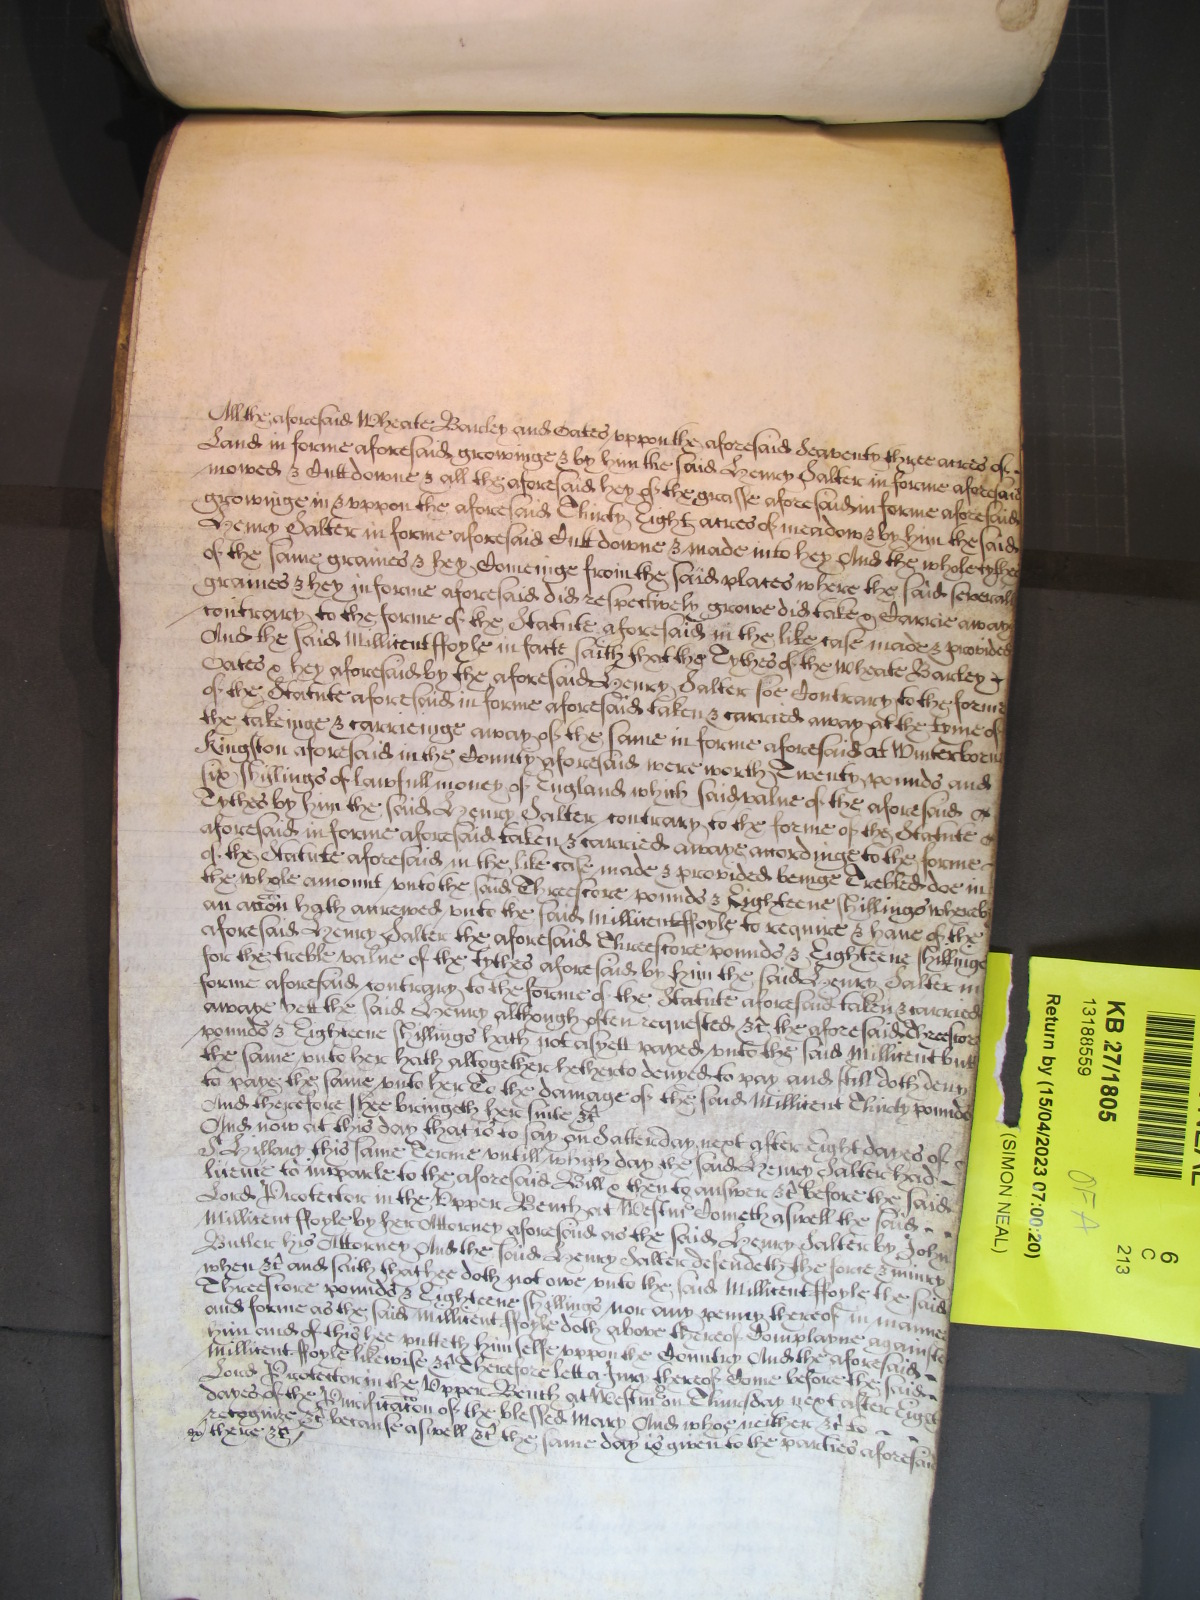 All the aforesaid Wheate Barley and Oates vppon the aforesaid Seaventy three acres of
Land in forme aforesaid growinge & by him the said Henry Salter in forme aforesaid
mowed & Cutt downe & all the aforesaid hey of the grasse aforesaid in forme aforesaid
growinge in & vppon the aforesaid Thirty Eight acres of meadow & by him the said
Henry Salter in forme aforesaid Cutt downe & made into hey And the whole tythes
of the same graines & hey Comeinge from the said places where the said severall
graines & hey in forme aforesaid did respectively growe did take & Carrie away
contrary to the forme of the Statute aforesaid in the like case made & provided
And the said Millicent ffoyle in facte saith that the Tythes of the Wheate Barley
Oates & hey aforesaid by the aforesaid Henry Salter soe Contrary to the forme
of the Statute aforesaid in forme aforesaid taken & carried away at the tyme of
the takeinge & carrieinge away of the same in forme aforesaid at Winterborn
Kingston aforesaid in the County aforesaid were worth Twenty pounds and
six shillings of lawfull money of England which said value of the aforesaid
Tythes by him the said Henry Salter contrary to the forme of the Statute
aforesaid in forme aforesaid taken & carried awaye accordinge to the forme
of the Statute aforesaid in the like case made & provided beinge Trebled doe in
the whole amount vnto the said Threescore pounds & Eighteene shillings whereby
an accon hath accrewed vnto the said Millicent ffoyle to require & haue of the
aforesaid Henry Salter the aforesaid Threescore pounds & Eighteene shillings
for the treble value of the tythes aforesaid by him the said Henry Salter in
forme aforesaid contrary to the forme of the Statute aforesaid taken & carried
awaye yett the said Henry although often requested &c the aforesaid Threescore
pounds & Eighteene shillings hath not as yett payed vnto the said Millicent butt
the same vnto her hath altogether hetherto denyed to pay and still doth deny
to paye the same vnto her To the damage of the said Millicent Thirty pounds
And therefore shee bringeth her suite &c
And now at this day that is to say on Satterday next after Eight dayes of
St Hillary this same Terme vntill which day the said Henry Salter had
licence to imparle to the aforesaid Bill & then to answer &c before the said
Lord Protector in the Vpper Bench at Westmr Cometh aswell the said
Millicent ffoyle by her Attorney aforesaid as the said Henry Salter by John
Butler his Attorney And the said Henry Salter defendeth the force & iniury
when &c and saith that hee doth not owe vnto the said Millicent ffoyle the said
Threescore pounds & Eighteene shillings nor any penny thereof in manner
and forme as the said Millicent ffoyle doth above thereof Complayne against
him and of this hee putteth himselfe vppon the Country And the aforesaid
Millicent ffoyle likewise &c Therefore lett a Jury thereof Come before the said
Lord Protector in the Vpper Bench at Westmr on Thursday next after Eight
dayes of the Purificacon of the blessed Mary And whoe neither &c to
recognize &c because aswell &c the same day is given to the parties aforesaid
there &c
KB 27/1805
13188559
Return by (15/04/2023 07:00:20)
(SIMON NEAL)
OFA
6
C
213